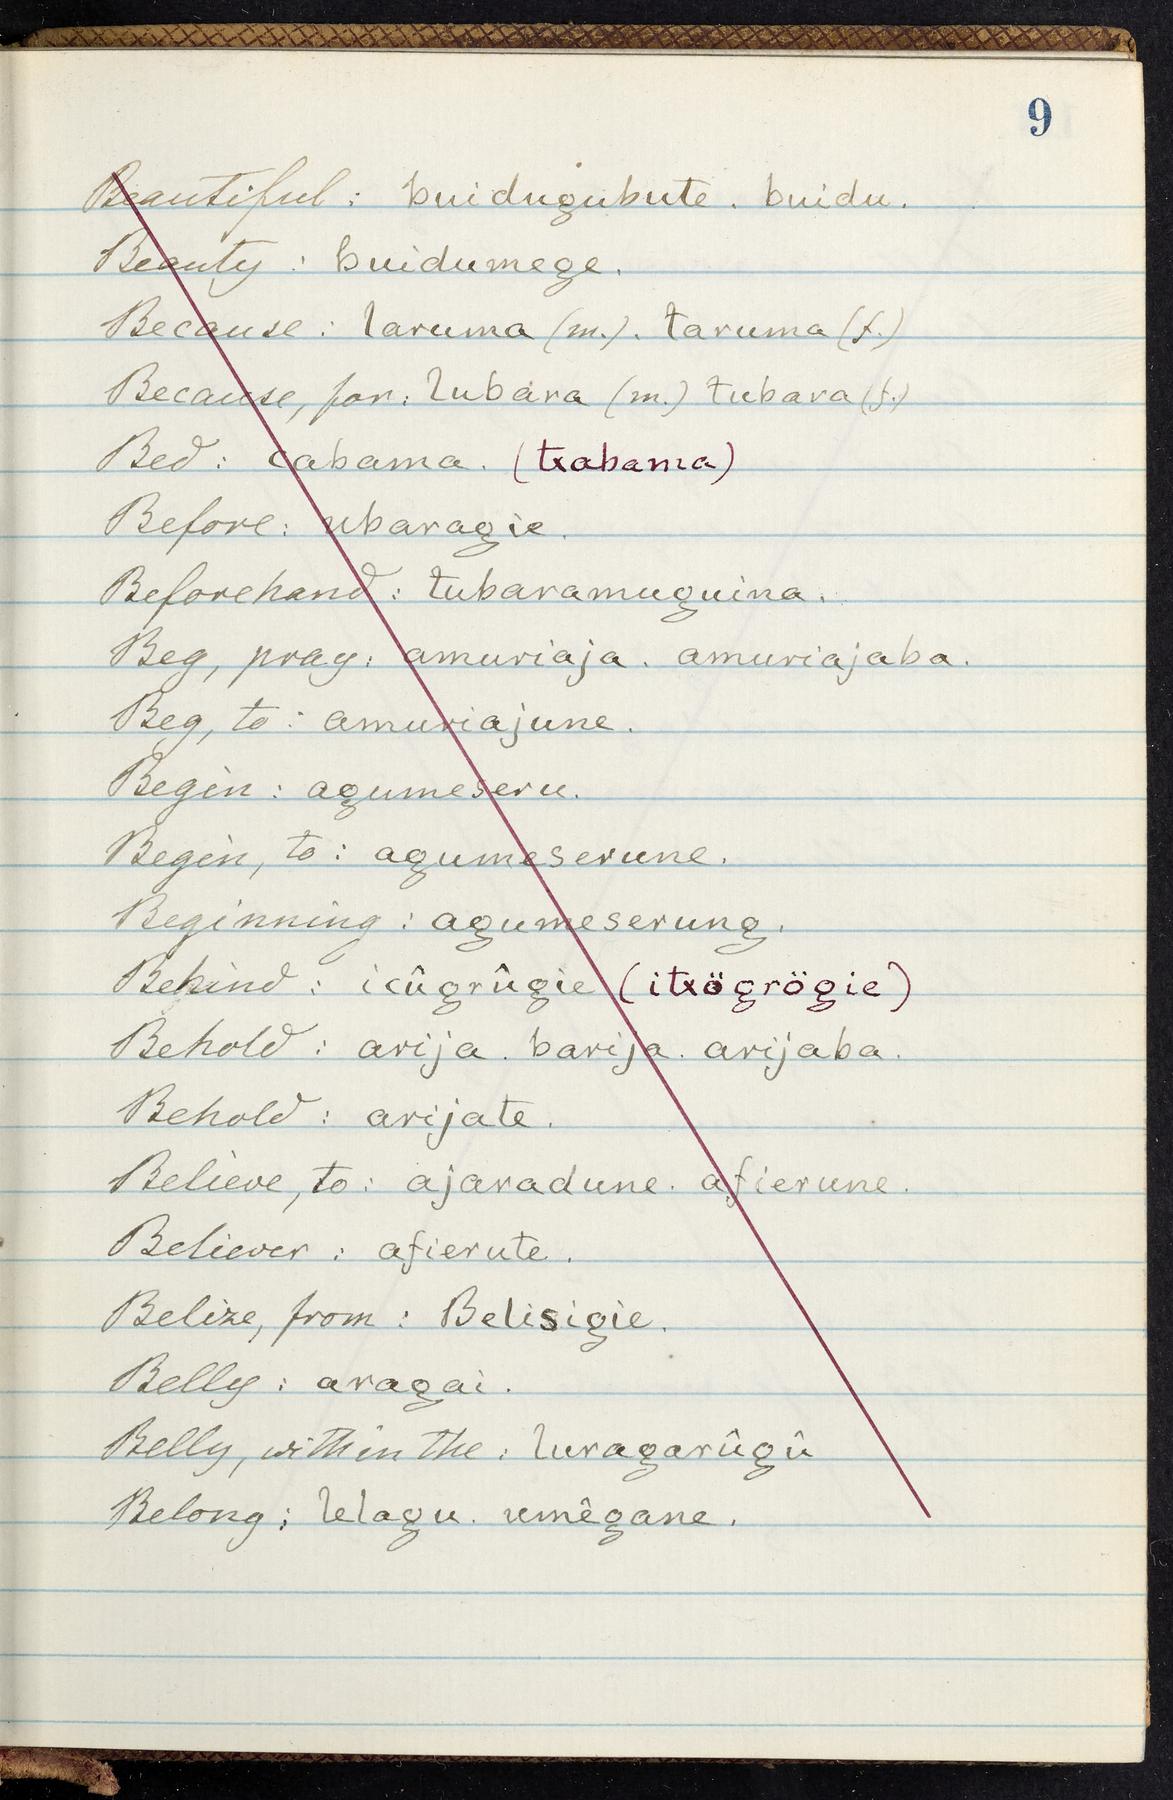 9
Beautiful: buidugubute. buidu.
Beauty: buidumege.
Because: laruma (m.). taruma (f.)
Because, for: lubara (m.) tubara (f.)
Bed: cabama. (txabama)
Before: ubaragie.
Beforehand: tubaramuguina.
Beg, pray: amuriaja. amuriajaba.
Beg, to: amuriajune.
Begin: agumeseru.
Begin, to: agumeserune.
Beginning: agumeserung.
Behind: icûgrûgie (itxögrögie)
Behold: arija. barija. arijaba.
Behold: arijate.
Believe, to: ajaradune. afierune.
Believer: afierute.
Belize, from: Belisigie.
Belly: aragai.
Belly, within the: luragarûgû
Belong: lelagu. umêgane.